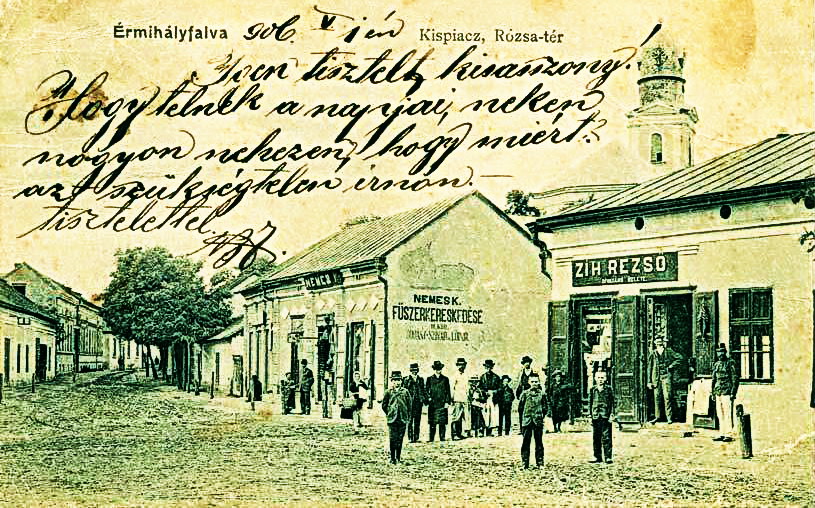 Érmihályfalva 906. V 1 én Kispiacz, Rózsa-tér
Igen tisztelt kisasszony!
Hogy telnek a napjai, neken
nagyon nehezen, hogy miért?
azt szükségtelen irnom. —
tisztelettel
NEMES K.
NEMES K.
FŰSZERKERESKEDÉSE
ZIH REZSŐ
ÜZLETE